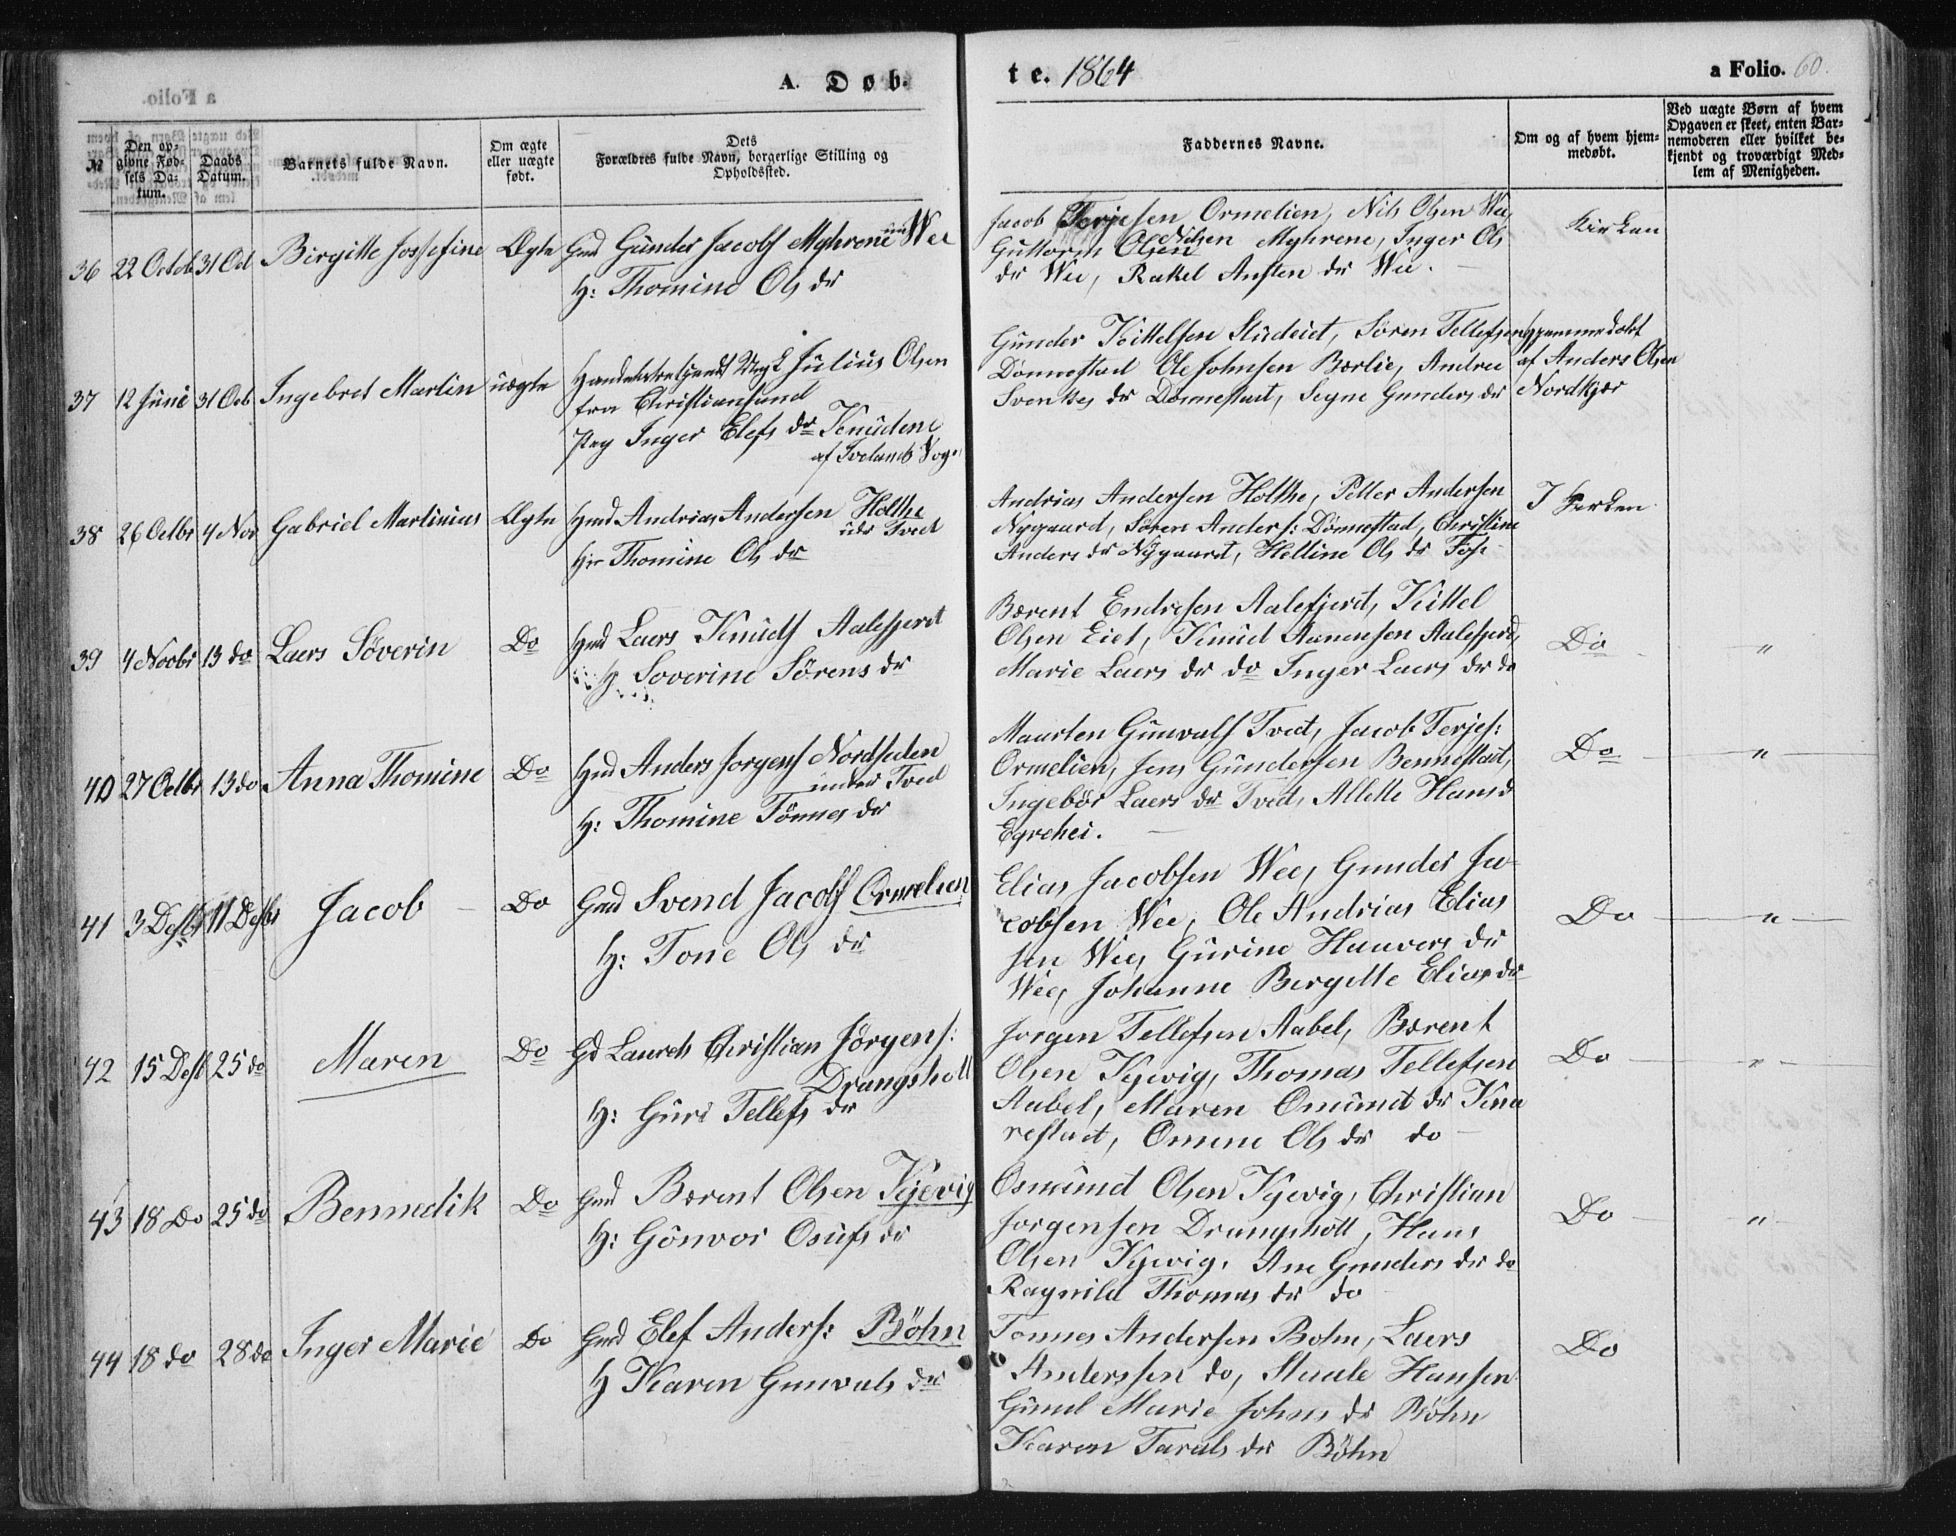 A. Døb-
te. 1864
a Folio. 60.
№
Den op-
givne Fød-
sels Da-
tum.
Daabs
Datum.
Barnets fulde Navn.
Om ægte
eller uægte
født.
Dets
Forældres fulde Navn, borgerlige Stilling og
Opholdssted.
Faddernes Navne.
Om og af hvem hjem-
medøbt.
Ved uægte Børn af hvem
Opgaven er skeet, enten Bar-
nemoderen eller hvilket be-
kjendt og troværdigt Med-
lem af Menigheden.
36 22 Octob 31 Oct Birgitte Jossefine Ægte Gmd Gunder Jacobs Myhrene un Wee
H: Thomine Ols dr
Jacob Terjesen Ormelien, Nils Olsen Wee,
Guttorm Olsen Nilsen Myhrene, Inger Ols
dr Wee, Rakel Ansten dr Wee.
Kirken
37 12 Juni 31 Octb Ingebret Martin uægte Julius Olsen
fra Christiansund
Pig Inger Elefs dr Knudene
af Ivelands Sogn
Gunder Kittelsen Studeidt, Søren Tellefsen
Dønnestad Ole Johnsen Bærlie, Andrea
Svenkes dr Dønnestad, Segne Gunders dr
Hjemmedøbt
af Anders Olsen
Nordkjær
38 26 Octbr 4 Nov Gabriel Martinius Ægte Hmd Andrias Andersen Holthe
udr Tved
Hr Thomine Ols dr
Andrias Andersen Holthe, Petter Andersen
Nygaard, Søren Anders: Dønnestad, Christine
Anders dr Nygaard, Helline Ols dr Foss
I Kerken
39 4 Novbr 13 do Laers Söverin Do Hmd Laers Knuds Aalefjerd
H Soverine Sörens dr
Bærent Endresen Aalefjerd, Kittel
Olsen Eiet, Knud Aanensen Aalefjerd,
Marie Laers dr do Inger Laers dr do
Do "
40 27 Octbr 13 do Anna Thomine Do Hmd Anders Jorgens Nordseden
under Tved
H: Thomine Tönnes dr
Maarten Gunvals Tved, Jacob Terjes:
Ormelien, Jens Gundersen Bennestad,
Ingebör Laers dr Tved, Allette Hansd
Egrehei.
Do "
41 3 Desbr 11 Desbr Jacob Do Gmd Svend Jacobs Ormelien
H: Tone Ols dr
Elias Jacobsen Wee, Gunder Ja-
cobsen Wee, Ole Andrias Elias
sen Wee, Gurine Haavers dr
Wee, Johanne Bergitte Elias dr
Do "
42 15 Desb 25 do Maren Do Gd Laurets Christian Jörgens:
Drangsholt
H: Guri Tellefs dr
Jorgen Tellefsen Aabel, Bærent
Olsen Kjevig, Thomas Tellefsen
Aabel, Maren Omund dr Kna
restad, Omme Ols dr do
Do "
43 18 Do 25 do Bennedik Do Gmd Bærent Olsen Kjevig
H: Gönvor Osufs dr
Osmund Olsen Kjevig, Christian
Jorgensen Drangsholt, Hans
Olsen Kjevig, Ane Gunders dr do
Ragnild Thomas dr do
Do "
44 18 do 28 do Inger Marie Do Gmd Elef Anders: Böhn
H Karen Gunvals dr
Tonnes Andersen Bohn, Laers
Anderssen do, Staale Hansen
Gunil Marie Johns dr Böhn
Karen Tarals dr Böhn
Do